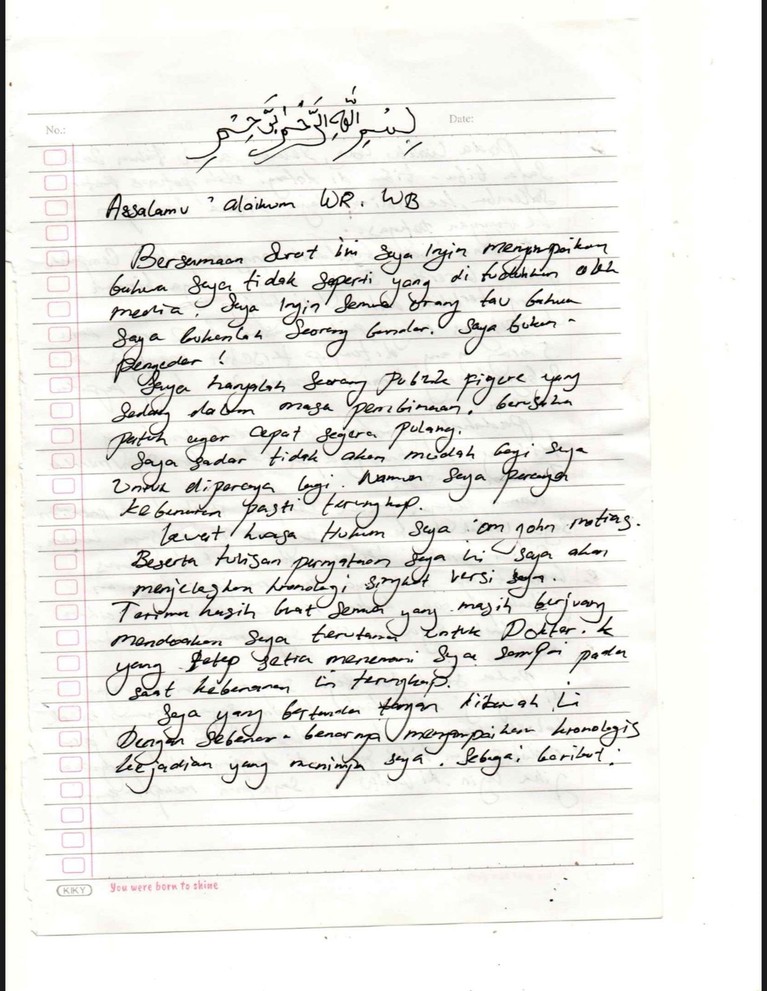 No.:
Date:
بِسْمِ اللّٰهِ الرَّحْمٰنِ الرَّحِيْمِ
Assalamu 'alaikum WR. WB
Bersamaan Surat ini Saya Ingin menyampaikan
bahwa Saya tidak Seperti yang di tuduhkan oleh
media. Saya Ingin Semua orang tau bahwa
Saya bukanlah Seorang bandar. Saya bukan -
Pengedar !
Saya hanyalah Seorang Publik figure yang
Sedang dalam masa pembinaan. berusaha
patuh agar cepat segera pulang.
Saya Sadar tidak akan mudah bagi Saya
Untuk dipercaya lagi. Namun Saya percaya
kebenaran pasti terungkap.
Lewat kuasa Hukum Saya om john matias.
Beserta tulisan pernyataan Saya ini Saya akan
menjelaskan kronologi singkat versi Saya.
Terima kasih buat Semua yang masih berjuang
mendoakan Saya terutama Untuk Dokter. K
yang tetap setia menemani Saya Sampai pada
saat kebenaran ini terungkap.
Saya yang bertanda tangan dibawah ini
Dengan Sebenar - benarnya menyampaikan kronologis
kejadian yang menimpa saya. Sebagai berikut :
KIKY
You were born to shine